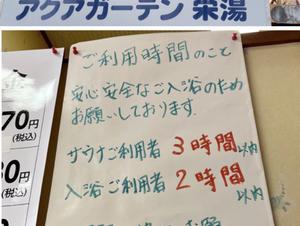 アクアガーデン 栄湯
ご利用時間のこと
安心安全なご入浴のため
お願いしております。
サウナご利用者 3時間以内
入浴ご利用者 2時間以内
70円
(税込)
80円
(税込)